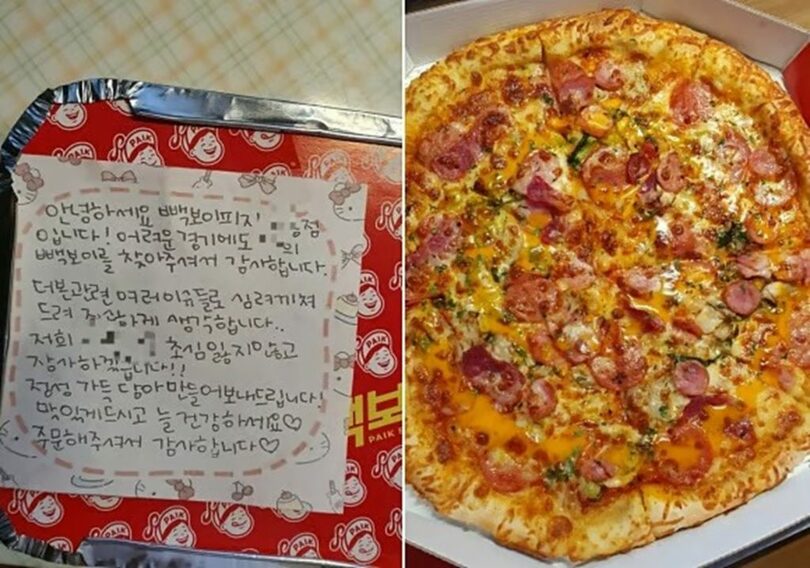 안녕하세요 빽보이피자 점
입니다! 어려운 경기에도 의
빽보이를 찾아주셔서 감사합니다.
더본관련 여러이슈들로 심려끼쳐
드려 죄송하게 생각합니다..
저희 초심 잃지않고
장사하겠습니다!!
정성 가득 담아 만들어보내드립니다!
맛있게드시고 늘 건강하세요♡
주문해주셔서 감사합니다♡
PAIK
빽보
PAIK